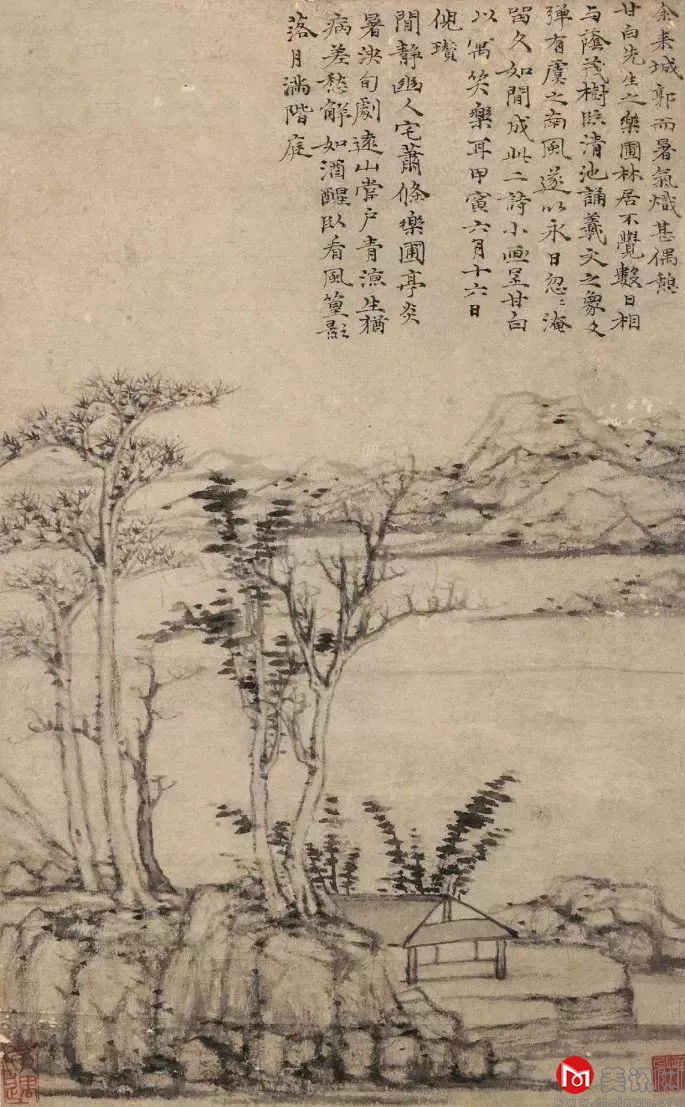 余来城郭而暑氣熾甚偶憩
甘白先生之樂圃林居不覺數日相
与蔭茂樹臨清池誦羲文之象爻
彈有虞之南風遂以永日忽〻淹
留久如閒成此二詩小畫呈甘白
以寓笑樂耳甲寅六月十六日
倪瓚
閒靜幽人宅蕭條樂圃亭炎
暑浹旬劇遠山當戶青漁生猶
病差愁解如酒醒臥看風篁影
落月滿階庭
美讯